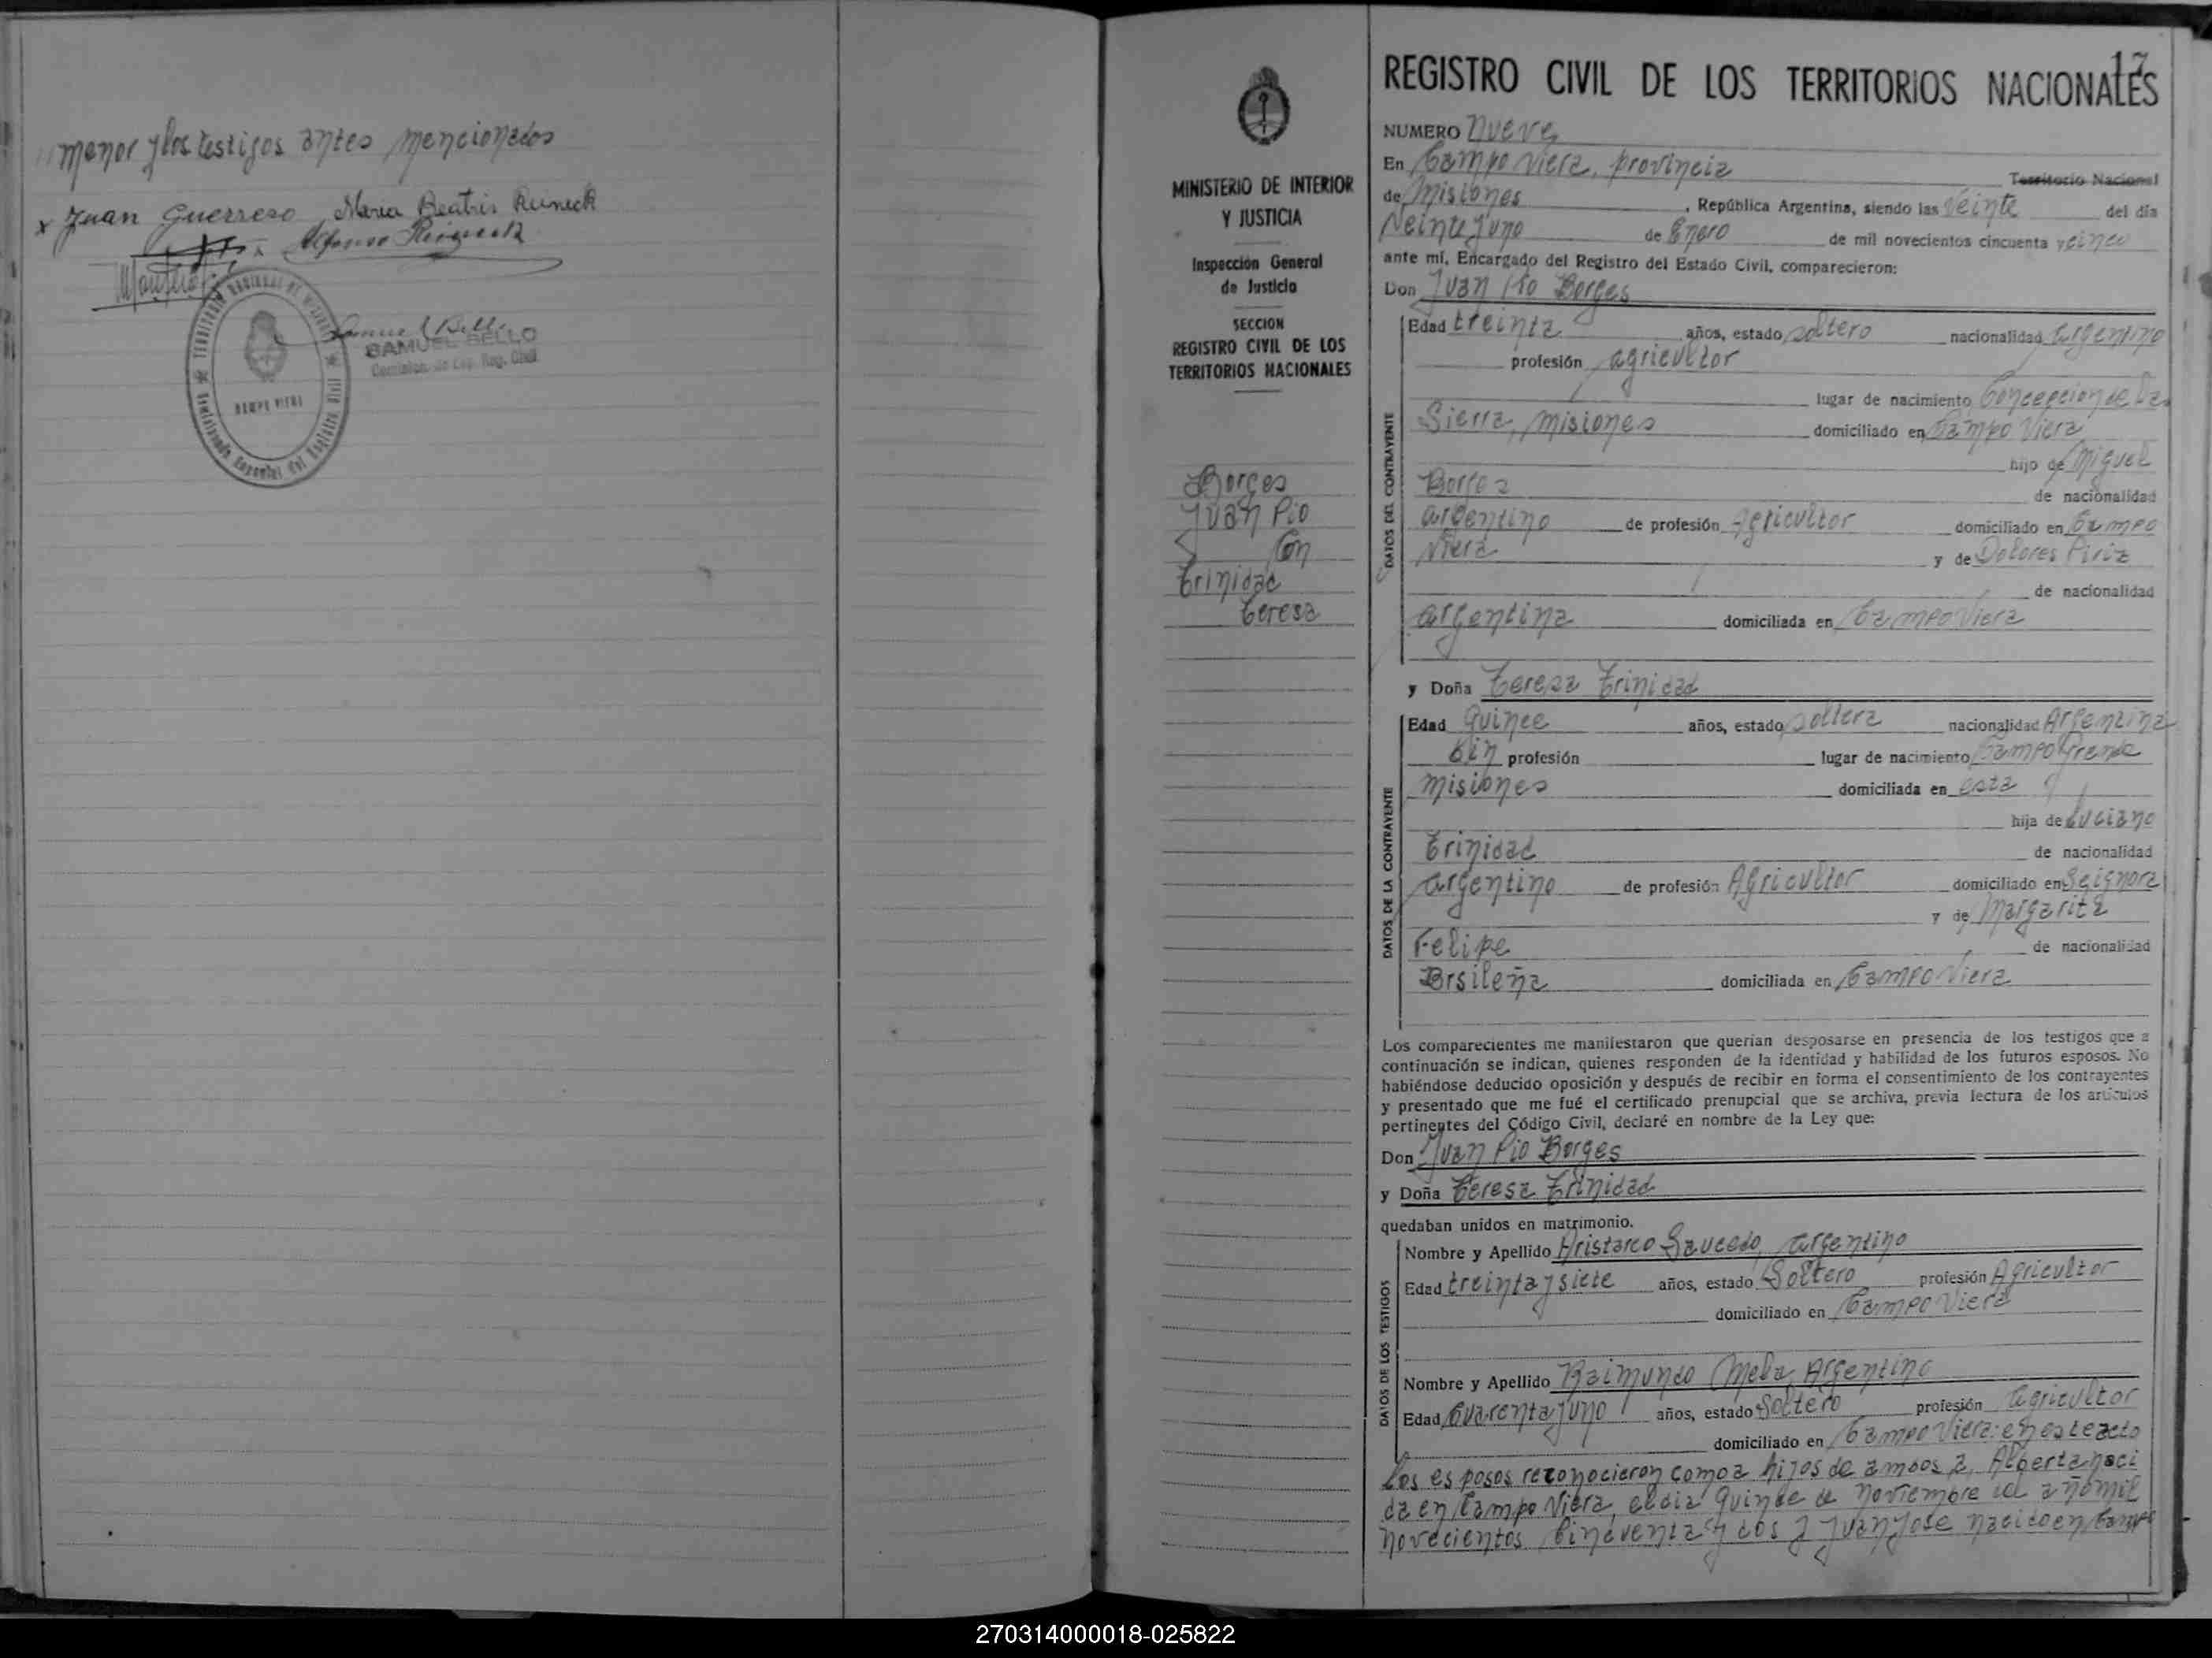 menor y los testigos antes mencionados
x Juan Guerrero Maria Beatris Reineck
Alfonso
CAMPO VIERA
SAMUEL BELLO
Reg. Civil
MINISTERIO DE INTERIOR
Y JUSTICIA
Inspección General
de Justicia
SECCION
REGISTRO CIVIL DE LOS
TERRITORIOS NACIONALES
Borges
Juan Pio
Con
Trinidad
Teresa
17
REGISTRO CIVIL DE LOS TERRITORIOS NACIONALES
NUMERO Nueve
En Campo Viera, provincia Territorio Nacional
de Misiones, República Argentina, siendo las veinte del día
Veintejuno de Enero de mil novecientos cincuenta y cinco
ante mí, Encargado del Registro del Estado Civil, comparecieron:
Don Juan Pio Borges
DATOS DEL CONTRAYENTE
Edad treinta años, estado soltero nacionalidad argentino
profesión agricultor
lugar de nacimiento Concepcion de La
Sierra, Misiones domiciliado en Campo Viera
hijo de Miguel
Borges de nacionalidad
argentino de profesión Agricultor domiciliado en Campo
Viera y de Dolores Piriz
de nacionalidad
argentina domiciliada en Campo Viera
y Doña Teresa Trinidad
DATOS DE LA CONTRAYENTE
Edad Quince años, estado soltera nacionalidad Argentina
Sin profesión lugar de nacimiento Campo Grande
Misiones domiciliada en esta
hija de Luciano
Trinidad de nacionalidad
argentino de profesión Agricultor domiciliado en
y de Margarita
Felipe de nacionalidad
Brsileña domiciliada en Campo Viera
Los comparecientes me manifestaron que querían desposarse en presencia de los testigos que a
continuación se indican, quienes responden de la identidad y habilidad de los futuros esposos. No
habiéndose deducido oposición y después de recibir en forma el consentimiento de los contrayentes
y presentado que me fué el certificado prenupcial que se archiva, previa lectura de los artículos
pertinentes del Código Civil, declaré en nombre de la Ley que:
Don Juan Pio Borges
y Doña Teresa Trinidad
quedaban unidos en matrimonio.
DATOS DE LOS TESTIGOS
Nombre y Apellido Aristarco Saucedo, argentino
Edad treinta y siete años, estado Soltero profesión Agricultor
domiciliado en Campo Viera
Nombre y Apellido Raimundo Mela Argentino
Edad Cuarentajuno años, estado Soltero profesión agricultor
domiciliado en Campo Viera: en este acto
los esposos reconocieron como a hijos de ambos a, Alberta naci
da en Campo Viera, el dia Quince de Noviembre del año mil
novecientos Cincuenta y dos y Juan Jose nacido en Campo
270314000018-025822